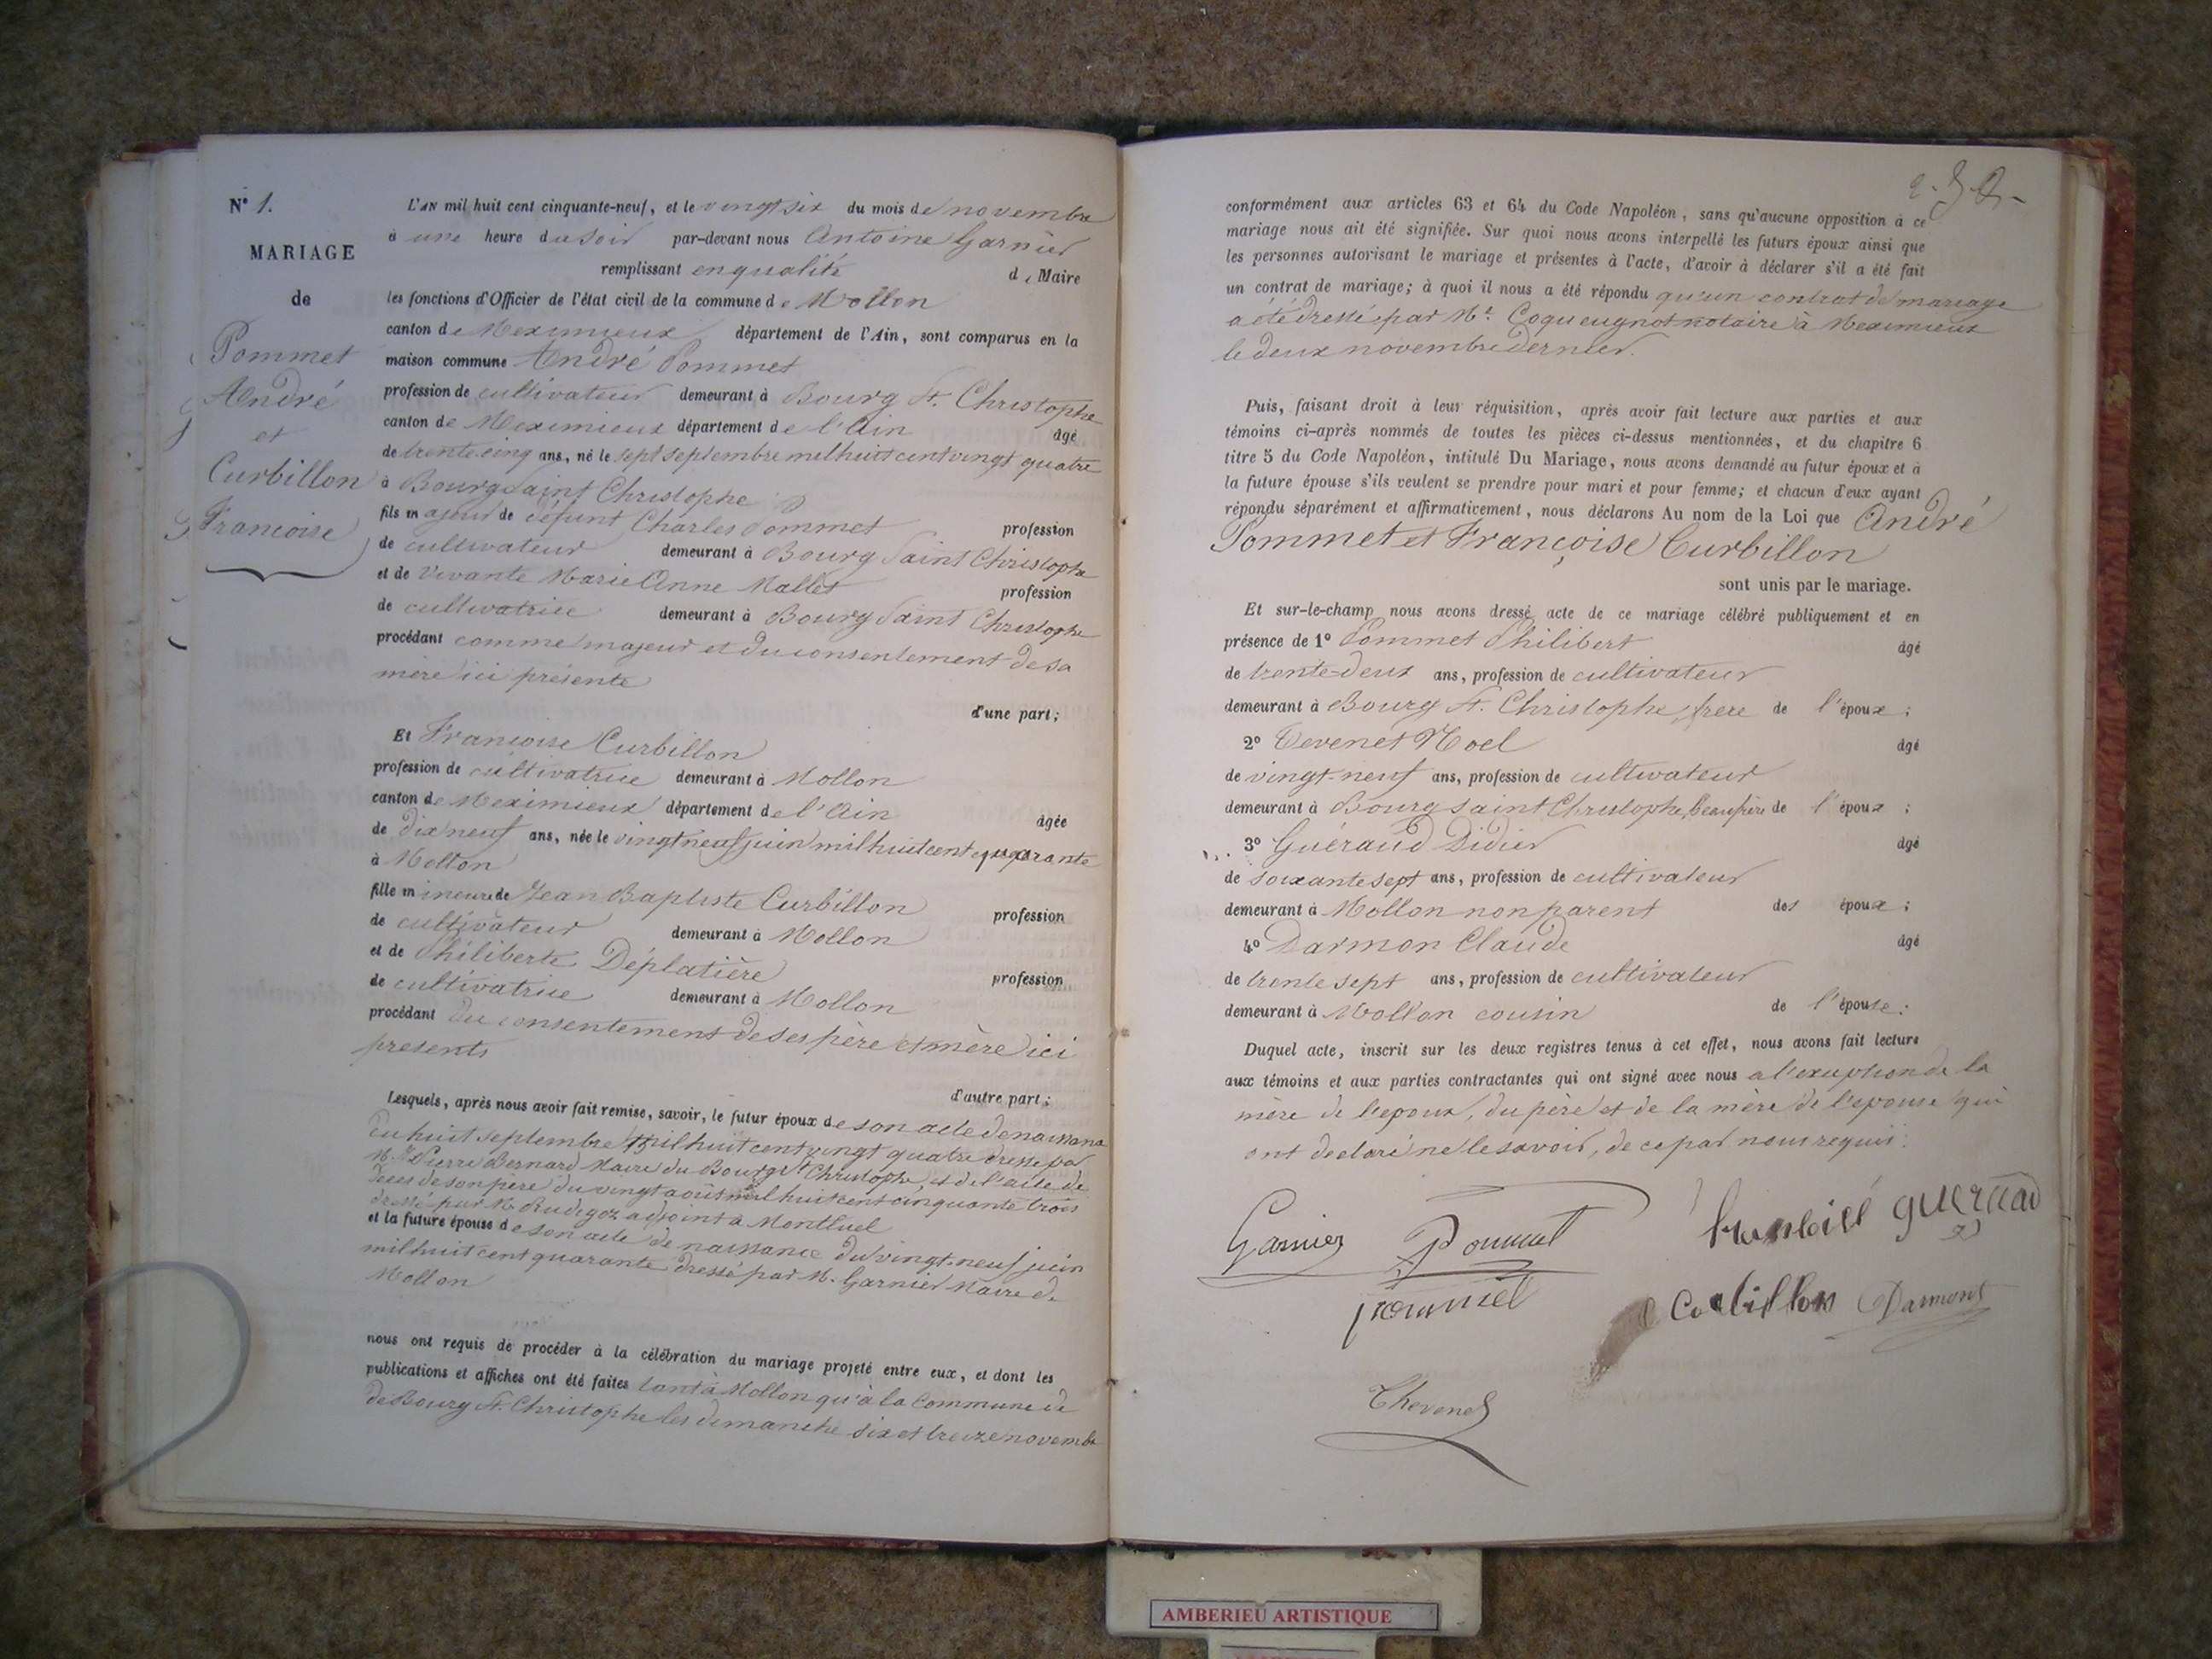 N° 1.
MARIAGE
de
Pommet
André
et
Curbillon
Francoise
L'AN mil huit cent cinquante-neuf, et le vingt six du mois de novembre
à une heure du soir par-devant nous Antoine Garnier
remplissant en qualité de Maire
les fonctions d'Officier de l'état civil de la commune de Mollon
canton de Meximieux département de l'Ain, sont comparus en la
maison commune André Pommet
profession de cultivateur demeurant à Bourg St. Christophe
canton de Meximieux département de l'Ain âgé
de trente cinq ans, né le sept septembre mil huit cent vingt quatre
à Bourg Saint Christophe
fils majeur de défunt Charles Pommet profession
de cultivateur demeurant à Bourg Saint Christophe
et de vivante Marie Anne Mallet profession
de cultivatrice demeurant à Bourg Saint Christophe
procédant comme majeur et du consentement de sa
mère ici présente
d'une part;
Et Françoise Curbillon
profession de cultivatrice demeurant à Mollon
canton de Meximieux département de l'Ain âgée
de dix neuf ans, née le vingt neuf juin mil huit cent quarante
à Mollon
fille mineure de Jean Baptiste Curbillon profession
de cultivateur demeurant à Mollon
et de Philiberte Déplatière profession
de cultivatrice demeurant à Mollon
procédant du consentement de ses père et mère ici
presents
d'autre part;
Lesquels, après nous avoir fait remise, savoir, le futur époux de son acte de naissance
du huit septembre mil huit cent vingt quatre dressé par
M. Pierre Bernard Maire du Bourg St Christophe, et de l'acte de
deces de son père du vingt août mil huit cent cinquante trois
dressé par M. Rudigoz adjoint à Montluel
et la future épouse de son acte de naissance du vingt-neuf juin
mil huit cent quarante dressé par M. Garnier Maire de
Mollon
nous ont requis de procéder à la célébration du mariage projeté entre eux, et dont les
publications et affiches ont été faites tant à Mollon qu'à la Commune de
de Bourg St. Christophe les dimanche six et treize novembre
conformément aux articles 63 et 64 du Code Napoléon, sans qu'aucune opposition à ce
mariage nous ait été signifiée. Sur quoi nous avons interpellé les futurs époux ainsi que
les personnes autorisant le mariage et présentes à l'acte, d'avoir à déclarer s'il a été fait
un contrat de mariage; à quoi il nous a été répondu qu'un contrat de mariage
a été dressé par Mt. Coqueugnot notaire à Meximieux
le deux novembre dernier.
Puis, faisant droit à leur réquisition, après avoir fait lecture aux parties et aux
témoins ci-après nommés de toutes les pièces ci-dessus mentionnées, et du chapitre 6
titre 5 du Code Napoléon, intitulé Du Mariage, nous avons demandé au futur époux et à
la future épouse s'ils veulent se prendre pour mari et pour femme; et chacun d'eux ayant
répondu séparément et affirmativement, nous déclarons Au nom de la Loi que André
Pommet et Françoise Curbillon
sont unis par le mariage.
Et sur-le-champ nous avons dressé acte de ce mariage célébré publiquement et en
présence de 1° Pommet Philibert âgé
de trente-deux ans, profession de cultivateur
demeurant à Bourg St. Christophe, frere de l'époux;
2° Tevenet Noel âgé
de vingt-neuf ans, profession de cultivateur
demeurant à Bourg Saint Christophe, beaufrère de l'époux;
3° Guéraud Didier âgé
de soixante sept ans, profession de cultivateur
demeurant à Mollon non parent des époux;
4° Darmon Claude âgé
de trente sept ans, profession de cultivateur
demeurant à Mollon cousin de l'épouse.
Duquel acte, inscrit sur les deux registres tenus à cet effet, nous avons fait lecture
aux témoins et aux parties contractantes qui ont signé avec nous a l'exception de la
mère de l'époux, du père et de la mère de l'epouse qui
ont declaré ne le savoir, de ce par nous requis.
Garnier Pommet gueraud
pommet Darmont
Thevenet
AMBERIEU ARTISTIQUE